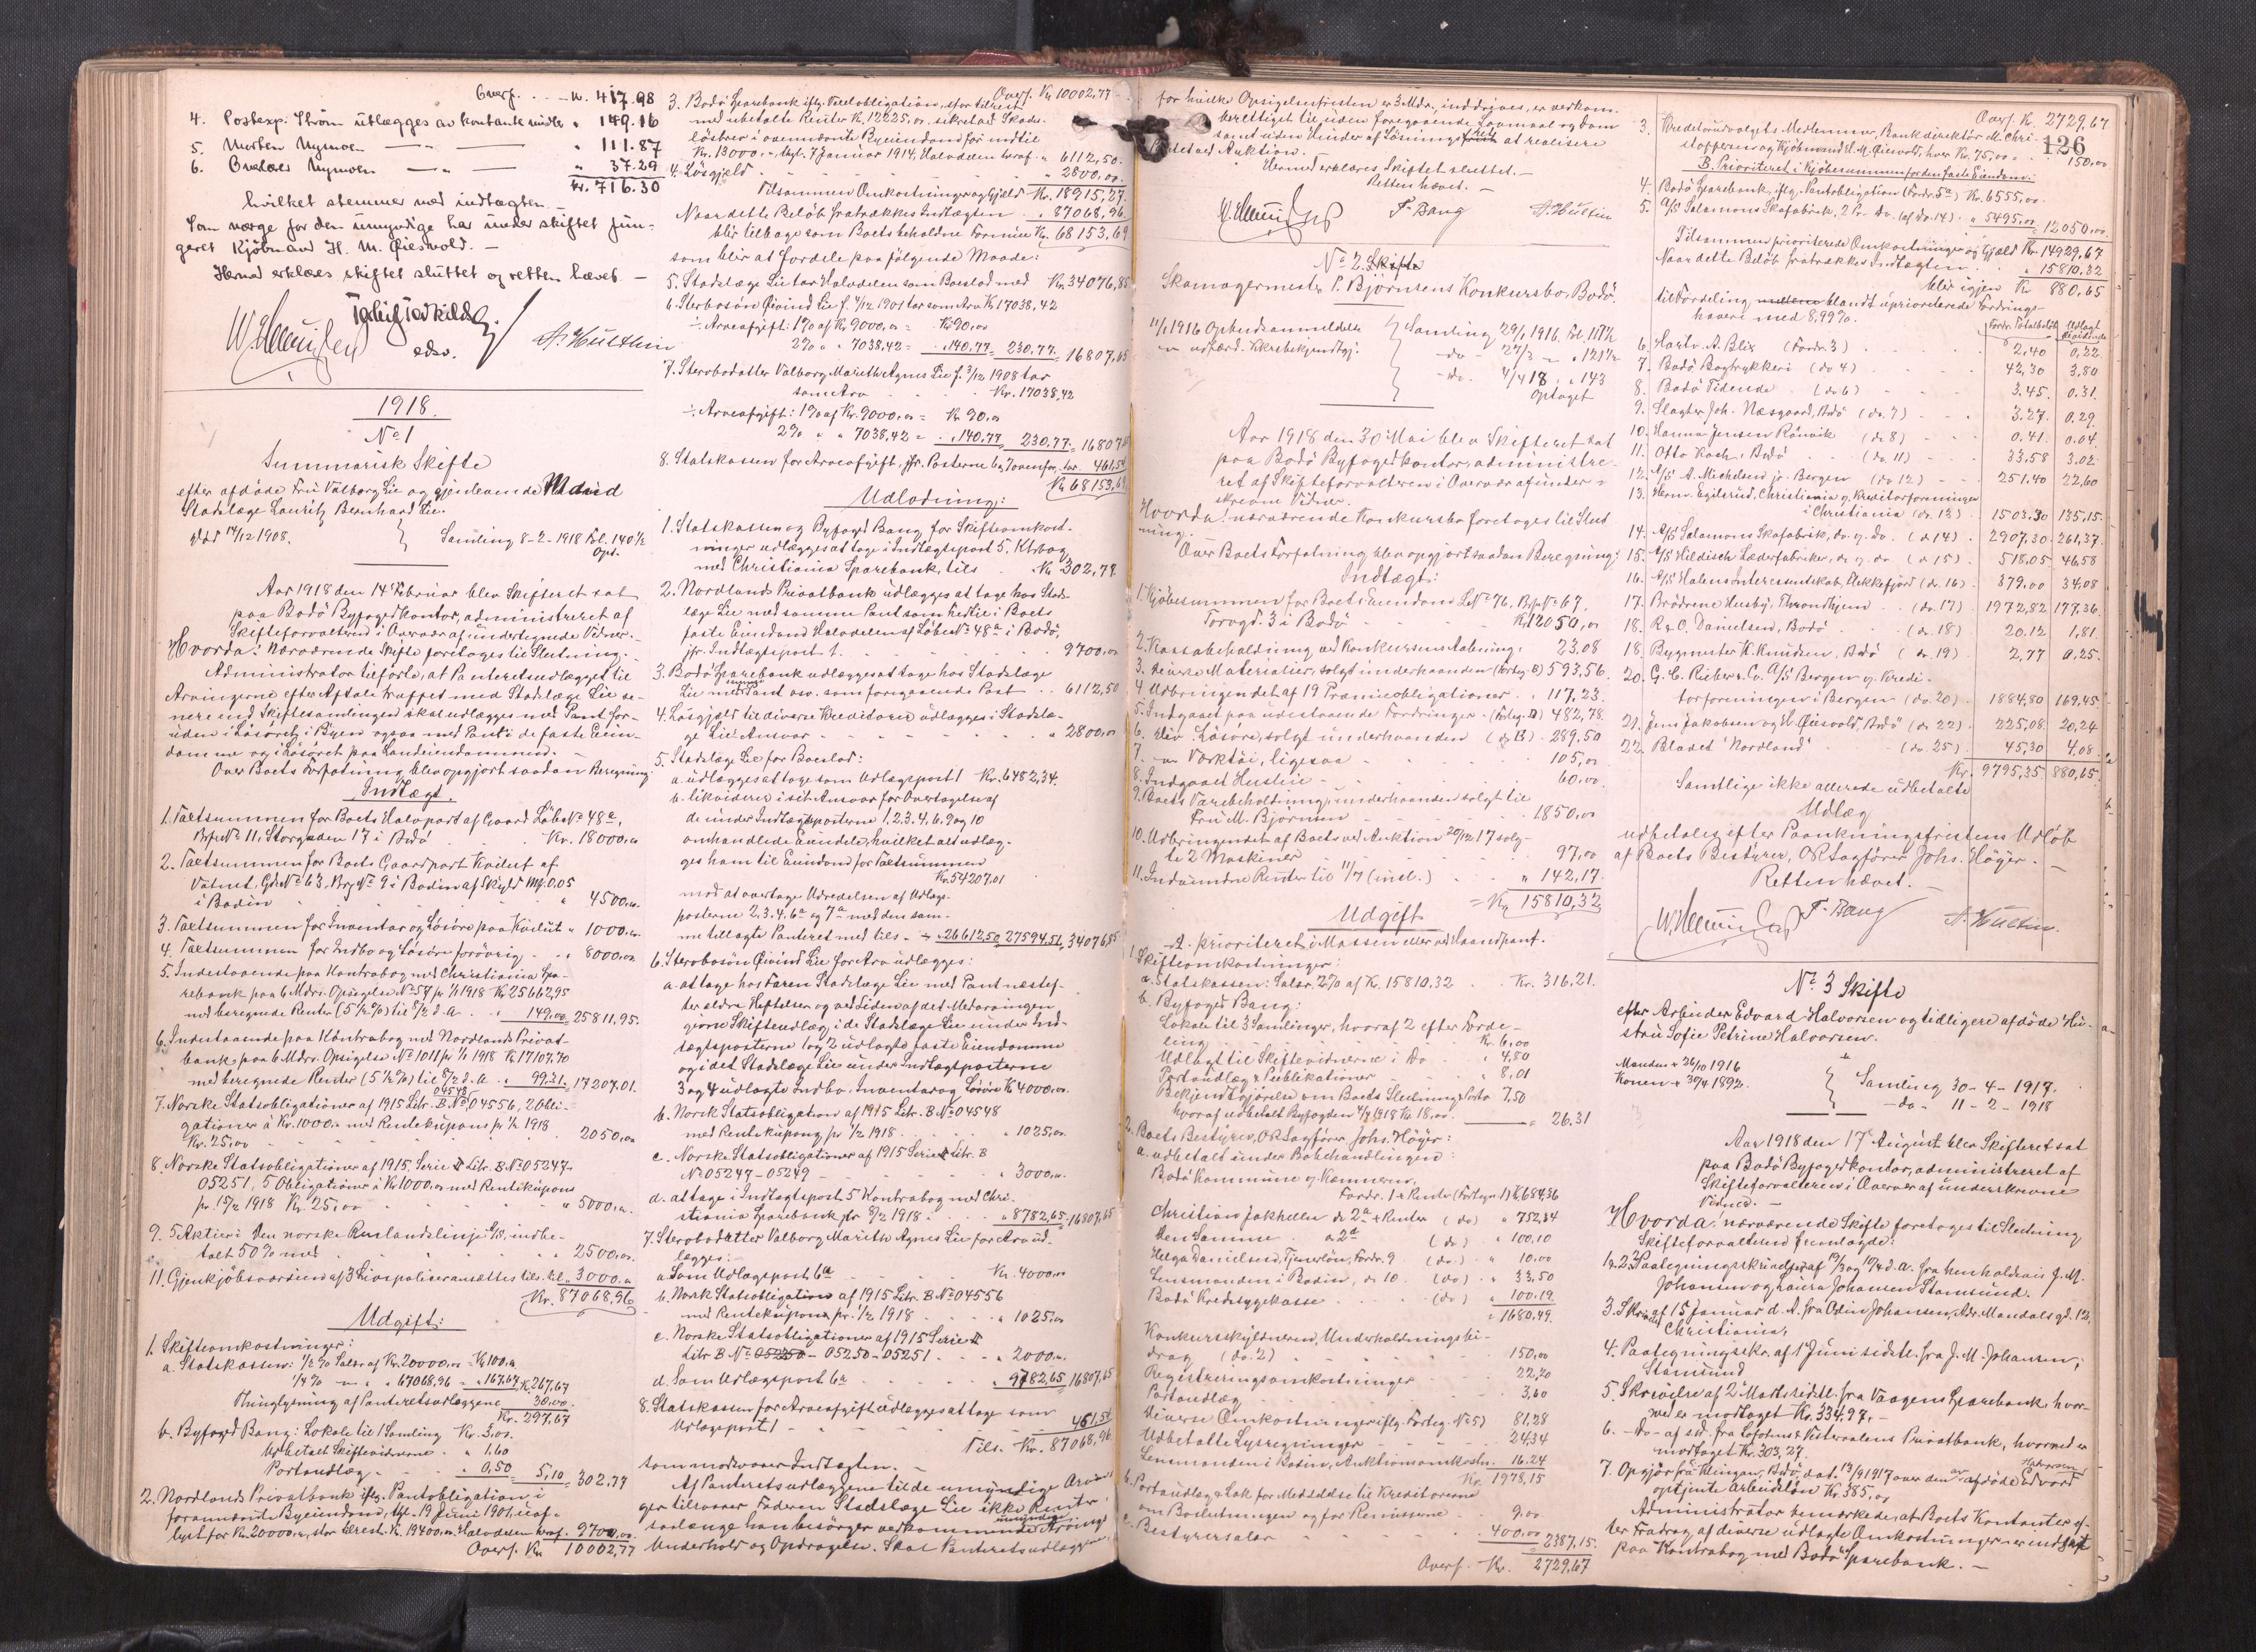 Overf. . . – Kr. 417.98
4. Postexp. Strøm utlægges av kontante midler „ 149.16
5. Morten Nymoen — „ — „ 111.87
6. Nymoen — „ — „ 37.29
Kr. 716.30
hvilket stemmer med indtægten.
Som værge for den umyndige har under skiftet fun-
geret Kjøbmand H. M. Qiesvold. —
Hermed erklæres skiftet sluttet og retten hævet —
edsv.
1918.
No 1
Summarisk Skifte
efter afdøde Fru Valborg Lie og gjenlevende Mand
Stadslæge Lauritz Bernhard Lie.
død 14/12 1908.
Samling 8-2-1918 Fol. 140 1/2
Opt.
Aar 1918 den 14 Februar blev Skifteret sat
paa Bodö Byfogedkontor, administreret af
Skifteforvalteren i Overvær af undertegnede Vidner. –
Hvorda: Nærværende Skifte foretoges til Slutning. –
Administrator tilförte, at Panteretsudlægget til
Arvingerne efter Aftale truffet med Stadslæge Lie se-
nere end Skiftesamlingen skal udlægges med Pant for-
uden i Lösöret i Byen ogsaa med Pant i de faste Eien-
domme og i Lösöret paa Landeiendommen. –
Over Boets Forfatning blev opgjort saadan Beregning:
Indtægt.
1. Taxtsummen for Boets Halvpart af Gaard Löbe No 48a,
Brs No 11, Storgaden 17 i Bodö . Kr. 18000,00
2. Taxtsummen for Boets Gaardpart Kvilut af
Vatnet, Gds No 63, Brs No 9 i Bodin af Skyld Mk. 0.05
i Bodin „ 4500,00
3. Taxtsummen for Inventar og Lösöre paa Kvilut „ 1000,00
4. Taxtsummen for Indbo og Lösöre forövrig . „ 8000,00
5. Indestaaende paa Kontrabog med Christiania Spa-
rebank paa 6 Mdrs. Opsigelse No 57 pr 1/1 1918 Kr. 25662,95
med beregnede Renter (5 1/2 %) til 8/2 d.A. . „ 149,00 = 25811,95.
6. Indestaaende paa Kontrabog med Nordlands Privat-
bank paa 6 Mdrs. Opsigelse No 1011 pr 1/1 1918 Kr. 17107,70
med beregnede Renter (5 1/2 %) til 8/2 d.A. . „ 99,31 = 17207.01.
7. Norske Statsobligationer af 1915 Litr. B. No 04548 04556, 2 Obli-
gationer à Kr. 1000,00 med Rentekupons pr 1/2 1918
Kr. 25,00 2050,00
8. Norske Statsobligationer af 1915, Serie II Litr. B No 05247-
05251, 5 Obligationer à Kr. 1000,00 med Rentekupons
pr. 15/2 1918 Kr. 25,00 „ 5000,00
9. 5 Aktier i Den norske Ruslandslinje A/S, indbe-
talt 50 % med „ 2500,00
11. Gjenkjöbsværdien af 3 Livspoliser ansættes tils. til „ 3000,00
Kr. 87068,96
Udgift:
1. Skifteomkostninger:
a. Statskassen: 1/2 % Salær af Kr. 20000,00 = Kr. 100,00
1/4 % — „ — „ 67068,96 = „ 167,67 Kr. 267,67
Thinglysning af Panteretsudlæggene 30,00
Kr. 297,67
b. Byfoged Bang: Lokale til 1 Samling Kr. 3,00
Udbetalt Skiftevidnerne . „ 1.60
Portoudlæg . „ 0,50 = 5,10 = 302,77
2. Nordlands Privatbank iflg. Pantobligation i
forannævnte Byeiendom, thgl. 19 Juni 1901, uaf-
lyst for Kr. 20000,00, stor tilrest Kr. 19400,00. Halvdelen heraf . 9700,00
Overf. Kr. 10002,77
Overf. Kr. 10002,77
3. Bodö Sparebank iflg. Pantobligation, stor tilrest
med ubetalte Renter Kr. 12225,00, sikret ad Skads-
löshed i ovennævnte Byeiendom for indtil
Kr. 13000,00 thgl. 7 Januar 1914, Halvdelen heraf . „ 6112,50.
4. Lösgjæld „ 2800,00
Tilsammen Omkostninger og Gjæld Kr. 18915,27.
Naar dette Belöb fratrækkes Indtægten „ 87068,96
blir tilbage som Boets beholdne Formue Kr. 68153,69
som blir at fordele paa fölgende Maade:
5. Stadslæge Lie tar Halvdelen som Boeslod med Kr. 34076,85
6. Sterbosön Eivind Lie f. 4/12 1901 tar som Arv Kr. 17038,42
÷ Arveafgift: 1% af Kr. 9000,00 = Kr. 90,00
2% „ „ 7038,42 = „ 140,77 = 230.77 = 16807,65
7. Sterbodatter Valborg Marith Agnes Lie f. 3/12 1908 tar
som Arv Kr. 17038,42
÷ Arveafgift: 1% af Kr. 9000,00 = Kr. 90,00
2% „ „ 7038,42 = „ 140,77 = 230.77 = 16807,65
8. Statskassen for Arveafgift, jfr. Posterne 6 og 7 ovenfor, tar 461,54
Kr. 68153,69
Udlodning:
1. Statskassen og Byfoged Bang for Skifteomkost-
ninger udlægges at tage i Indtægtspost 5, Ktrbog
med Christiania Sparebank, tils . Kr. 302,77.
2. Nordlands Privatbank udlægges at tage hos Stads-
læge Lie med samme Pant som hidtil i Boets
faste Eiendom Halvdelen af Löbe No 48a i Bodö,
jfr. Indtægtspost 1. 9700,00
3. Bodö Sparebank udlægges at tage hos Stadslæge
Lie med samme Pant osv. som foregaaende Post . . 6112,50
4. Lösgjæld til diverse Kreditorer udlægges i Stadslæ-
ge Lies Ansvar „ 2800,00
5. Stadslæge Lie for Boeslod:
a. udlægges at tage som Udlægspost 1 Kr. 6482,34.
b. likviderer i sit Ansvar for Overtagelse af
de under Indtægtsposterne 1,2,3,4,6,9 og 10
omhandlede Eiendele, hvilket alt udlæg-
ges ham til Eiendom for Taxtsummen
Kr. 54207.01
mod at overtage Udredelsen af Udlægs-
posterne 2,3,4,6a og 7a med den sam-
me tillagte Panteret med tils. ÷ „ 26612,50 27594,51 34076,85
6. Sterbosön Eivind Lie for Arv udlægges:
a. at tage hos Faren Stadslæge Lie med Pant næstef-
ter ældre Heftelser og ved Siden af det Medarvingen
givne Skifteudlæg i de Stadslæge Lie under Ind-
tægtsposterne 1 og 2 udlagte faste Eiendomme
og i det Stadslæge Lie under Indtægtsposterne
3 og 4 udlagte Indbo, Inventar og Lösöre Kr. 4000,00
b. Norsk Statsobligation af 1915 Litr. B No 04548
med Rentekupong pr 1/2 1918 „ 1025,00
c. Norske Statsobligationer af 1915 Serie II Litr. B
No 05247 – 05249 „ 3000,00
d. at tage i Indtægtspost 5 Kontrabog med Chri-
stiania Sparebank pr 8/2 1918 „ 8782,65 = 16807,65
7. Sterbodatter Valborg Marith Agnes Lie for Arv ud-
lægges:
a. Som Udlægspost 6a Kr. 4000,00
b. Norsk Statsobligation af 1915 Litr. B No 04556
med Rentekupon pr. 1/2 1918 „ 1025,00
c. Norske Statsobligationer af 1915 Serie II
Litr B No 05250 – 05250 – 05251 „ 2000,00
d. Som Udlægspost 6d „ 9782,65 16807,65
8. Statskassen for Arveafgift udlægges at tage som
Udlægspost 1 461,54
Tils. Kr. 87068,96
som modsvarer Indtægten. –
Af Panteretsudlæggene til de umyndige Arvin-
ger tilsvarer Faderen Stadslæge Lie ikke Renter
saalænge han besörger vedkommende umyndige Arvings
Underhold og Opdragelse. Skal Panteretsudlæggene,
for hvilke Opsigelsesfristen er 3 Mdr., inddrives, er vedkom.
berettiget til, uden foregaaende Lovmaal og Dom
samt uden Hinder af Lösningsfrist at realisere
Pantet ved Auktion.
Hermed erklæres Skiftet sluttet. –
Retten hævet. –
F. Bang
A. Hultin
No 2. Skifte
Skomagermester P. Björnsens Konkursbo, Bodö.
11/1 1916 Opbudsanmeldelse
— „ — udfærd. Skrbekjendtgj.
Samling 29/1 1916. Fol. 118 1/2
– do – 27/3 – „ – „ 121 1/2
– do. 4/4 18 „ „ 143
Optaget
Aar 1918 den 30 Mai blev Skifteret sat
paa Bodö Byfogedkontor, administre-
ret af Skifteforvalteren i Overvær af under-
skrevne Vidner.
Hvorda: nærværende Konkursbo foretoges til Slut-
ning.
Over Boets Forfatning blev opgjort saadan Beregning:
Indtægt:
1. Kjöbesummen for Boets Eiendom L No 76, Brs No 67,
Torvgd. 3 i Bodö Kr. 12050,00
2. Kassabeholdning ved Konkursens Aabning. 23.08
3. Diverse Materialier, solgt underhaanden (Forteg. C) 593,56.
4. Udbringendet af 19 Præmieobligationer . „ 117,23.
5. Indgaaet paa udestaaende Fordringer . (Forteg. D) 482,78.
6. Div. Lösöre, solgt underhaanden ( „ E) . 289,50
7. — „ — Værktöi, ligesaa 105,00
8. Indgaaet Husleie 60,00
9. Boets Varebeholdning, underhaanden solgt til
Fru M. Björnsen 1850,00
10. Udbringendet af Boets ved Auktion 20/12 17 solg-
te 2 Maskiner 97,00
11. Indvundne Renter til 11/7 (incl.) . . „ 142,17.
= Kr. 15810,32
Udgift
A. prioriteret i Massen eller ved Haandpant.
1. Skifteomkostninger:
a. Statskassen: Salær 2% af Kr. 15810,32 . . Kr. 316,21.
b. Byfoged Bang:
Lokale til 3 Samlinger, hvoraf 2 efter Forde-
ling Kr. 6,00
Udlagt til Skiftevidnerne i Do „ 4,80
Portoudlæg & Publikationer „ 8,01
Bekjendtgjörelse om Boets Slutning & Porto 7,50
hvoraf udbetalt Byfogden 4/4 1918 Kr. 18,00. — „ 26.31
2. Boets Bestyrer, OR Sagförer Johs. Höyer:
a. udbetalt under Bobehandlingen:
Bodö Kommune v. Kemneren,
Fordr. 1 & Renter (Fortegn. 1) Kr. 684,36
Christian Jakhelln do 2a & Renter (do) „ 752,34
Den Samme . „ 2a (do) . „ 100,10
Helga Danielsen, Tjenerlön, Fordr. 9 (do.) . „ 10,00
Lensmanden i Bodin, do 10. (do) . „ 33,50
Bodö Kredssygekasse (do) „ 100.19
„ 1680,49.
Konkursskyldneren, Underholdningsbi-
drag (do. 2) 150,00
Registreringsomkostninger 22,20
Portoudlæg 3,60
Diverse Omkostninger iflg. Forteg. No 5) 81,28
Udbetalte Lysregninger 24,34
Lensmanden i Bodin, Auktionsomkostn. 16.24
Kr. 1978,15
b. Portoudlæg & Lak for Meddelelse til Kreditorerne
om Boslutningen og for Remisserne . 9.00
c. Bestyrersalær 400,00 = 2387,15.
Overf. Kr. 2729,67
126
Overf. Kr. 2729,67
3. Kreditorudvalgets Medlemmer, Bankdirektör M. Chri-
stoffersen og Kjöbmand H. M. Qiesvold, hver Kr. 75,00 = 150,00
B. Prioriteret i Kjöbesummen for den faste Eiendom:
4. Bodö Sparebank, iflg. Pantobligation (Fordr. 5a) Kr. 6555,00.
5. A/S Salamons Skofabrik, 2 Pr. Do (af do. 14) . „ 5495,00 = 12050,00
Tilsammen prioriterede Omkostninger og Gjæld Kr. 14929,67
Naar dette Belöb fratrækkes Indtægten . „ 15810,32
blir igjen Kr. 880,65
til Fordeling blandt uprioriterede Fordrings-
havere med 8,99%.
Fordr. Totalbelöb Udlagt Dividende
6. Hartv. A. Blix (Fordr. 3) 2,40 0,22
7. Bodö Bogtrykkeri (do 4) 42,30 3,80
8. Bodö Tidende (do 6) 3.45. 0.31.
9. Slagter Joh. Næsgaard, Bodö (do. 7) 3.27. 0.29.
10. Hanna Jensen Rönvik (do 8) 0.41. 0.04.
11. Otto Koch, Bodö (do. 11) 33,58 3,02
12. A/S A. Michelsen jr. Bergen (do 12) 251.40 22,60
13. Herm. Egilsrud, Christiania v. Kreditorforeningen
i Christiania (do. 13) 1503.30 135,15.
14. A/S Salamons Skofabrik, do. v. Do. (do 14) 2907.30 261,37.
15. A/S Hildisch Læderfabriker, do v. do (do 15) 518,05 46,58
16. A/S Halens Interessentskab, Flekkefjord (do. 16) . 379,00 34,08
17. Brödrene Husby, Throndhjem (do. 17) 1972,82 177,36.
18. R. & O. Danielsen, Bodö (do. 18) 20.12 1,81.
18. Bygmester K. Knudsen, Bodö (do. 19) 2,77 0,25.
20. G. C. Rieber & Co. A/S Bergen v. Kredi-
torforeningen i Bergen (do. 20) 1884,80 169,45.
21. Jens Jakobsen og H. Qiesvold, Bodö (do 22) 225,08 20,24
22. Bladet "Nordland" (do. 25) 45,30 4,08.
Kr. 9795,35 880,65.
Samtlige ikke allerede udbetalte
Udlæg
udbetales efter Paaankningsfristens Udlöb
af Boets Bestyrer, OR Sagförer Johs. Höyer. –
Retten hævet. –
F. Bang
A. Hultin.
No 3 Skifte
efter Arbeider Edvard Halvorsen og tidligere afdöde Hu-
stru Sofie Petrine Halvorsen.
Manden + 26/10 1916
Konen + 30/4 1892.
Samling 30-4-1917.
– do – 11-2-1918
Aar 1918 den 17 August blev Skifteret sat
paa Bodö Byfogedkontor, administreret af
Skifteforvalteren i Overvær af underskrevne
Vidner. –
Hvorda: nærværende Skifte foretoges til Slutning
Skifteforvalteren fremlagde:
1 & 2. 2 Paategningsskrivelser af 19/3 og 10/4 d.A. fra henholdsvis J. M.
Johansen og Laura Johansen Stamsund.
3. Skriv. af 15 Januar d.A. fra Odin Johansen, Adr. Mandalsgd. 12,
Christiania,
4. Paategningsskr. af 1 Juni sidstl. fra J. M. Johansen,
Stamsund
5. Skrivelse af 2 Marts sidstl. fra Vaagens Sparebank, hvor-
ved er modtaget Kr. 334,97. –
6. – Do – af s.d. fra Lofotens & Vesteraalens Privatbank, hvorved er
modtaget Kr. 303,27
7. Opgjör fra Klingan, Bodö, dat. 13/9 1917 over den av afdöde Edvard Halvorsen
optjente Arbeidslön Kr. 385,00
Administrator bemærkede, at Boets Kontanter ef-
ter Fradrag af diverse udlagte Omkostninger er indsat
paa Kontrabog med Bodö Sparebank. –